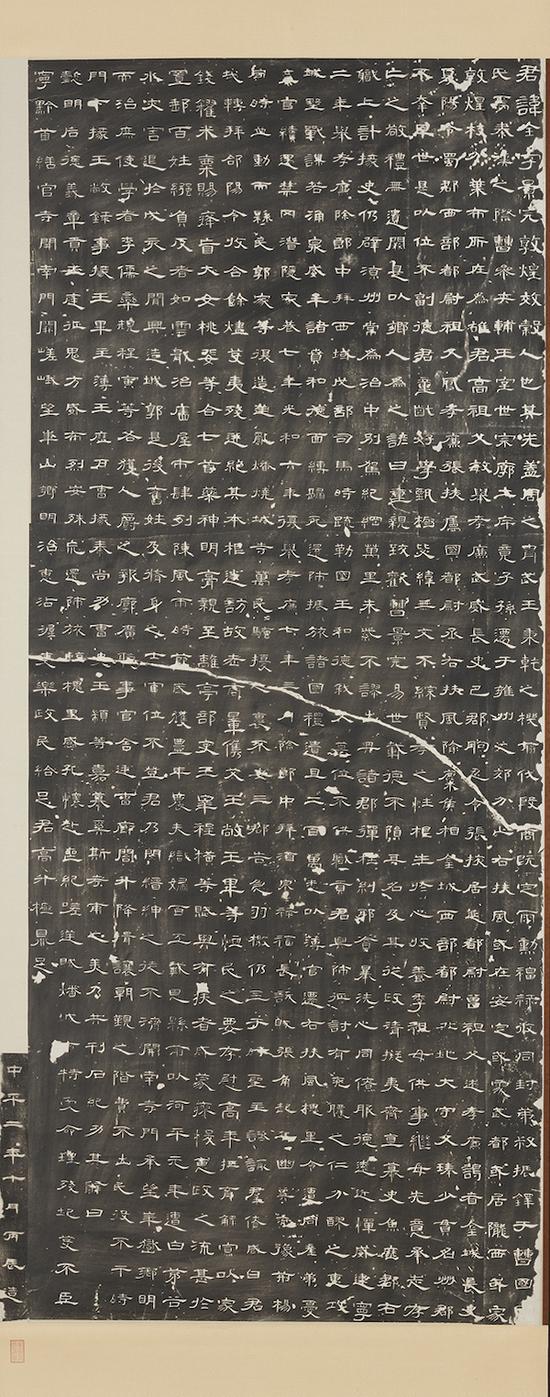 君諱全字景完敦煌效穀人也其先蓋周之胄武王秉乾之機翦伐殷商既定爾勳福祿攸同封弟叔振鐸于曹國
氏焉秦漢之際曹參夾輔王室世宗廓土斥竟子孫遷于雍州之郊分止右扶風或在安定或處武都或居隴西或家
敦煌枝分葉布所在為雄君高祖父敏舉孝廉武威長史巴郡朐忍令張掖居延都尉曾祖父述孝廉謁者金城長史
夏陽令蜀郡西部都尉祖父鳳孝廉張掖屬國都尉丞右扶風隃麋侯相金城西部都尉北地大守父琫少貫名州郡
不幸早世是以位不副德君童齔好學甄極毖緯無文不綜賢孝之性根生於心收養季祖母供事繼母先意承志存
亡之敬禮無遺闕是以鄉人為之諺曰重親致歡曹景完易世載德不隕其名及其從政清擬夷齊直慕史魚歷郡右
職上計掾史仍辟涼州常為治中別駕紀綱萬里朱紫不謬出典諸郡彈枉糾邪貪暴洗心同僚服德遠近憚威建寧
二年舉孝廉除郎中拜西域戊部司馬時疏勒國王和德弒父篡位不供職貢君興師征討有兗膿之仁分醪之惠攻
城野戰謀若涌泉威牟諸賁和德面縛歸死還師振旅諸國禮遺且二百萬悉以薄官遷右扶風槐里令遭同產弟憂
棄官續遇禁网潛隱家巷七年光和六年復舉孝廉七年三月除郎中拜酒泉祿福長訞賊張角起兵幽冀兗豫荊楊
同時並動而縣民郭家等復造逆亂燔燒城寺萬民騷擾人裹不安三郡告急羽檄仍至于時聖主諮諏群僚咸曰君
哉轉拜郃陽令收合餘燼芟夷殘迸絕其本根遂訪故老商量儁艾王敞王畢等恤民之要存慰高年撫育鰥寡以家
錢糴米粟賜癃盲大女桃婓等合七首藥神明膏親至離亭部吏王宰程橫等賦與有疾者咸蒙瘳悛惠政之流甚於
置郵百姓繈負反者如雲戢治廧屋市肆列陳風雨時節歲獲豐年農夫織婦百工戴恩縣前以河平元年遭白茅谷
水災害退於戌亥之間興造城郭是後舊姓及脩身之士官位不登君乃閔縉紳之徒不濟開南寺門承望華嶽鄉明
而治庶使學者李儒欒規程寅等各獲人爵之報廓廣聽事官舍廷曹廊閤升降揖讓朝覲之階費不出民役不干時
門下掾王敞錄事掾王畢主簿王歷戶曹掾秦尚功曹史王顓等嘉慕奚斯考甫之美乃共刊石紀功其辭曰
懿明后德義章貢王庭征鬼方威布烈安殊荒還師旅臨槐里感孔懷赴喪紀嗟逆賊燔城市特受命理殘圮芟不臣
寧黔首繕官寺開南門闕嵯峨望華山鄉明治惠沾渥吏樂政民給足君高升極鼎足
中平二年十月丙辰造